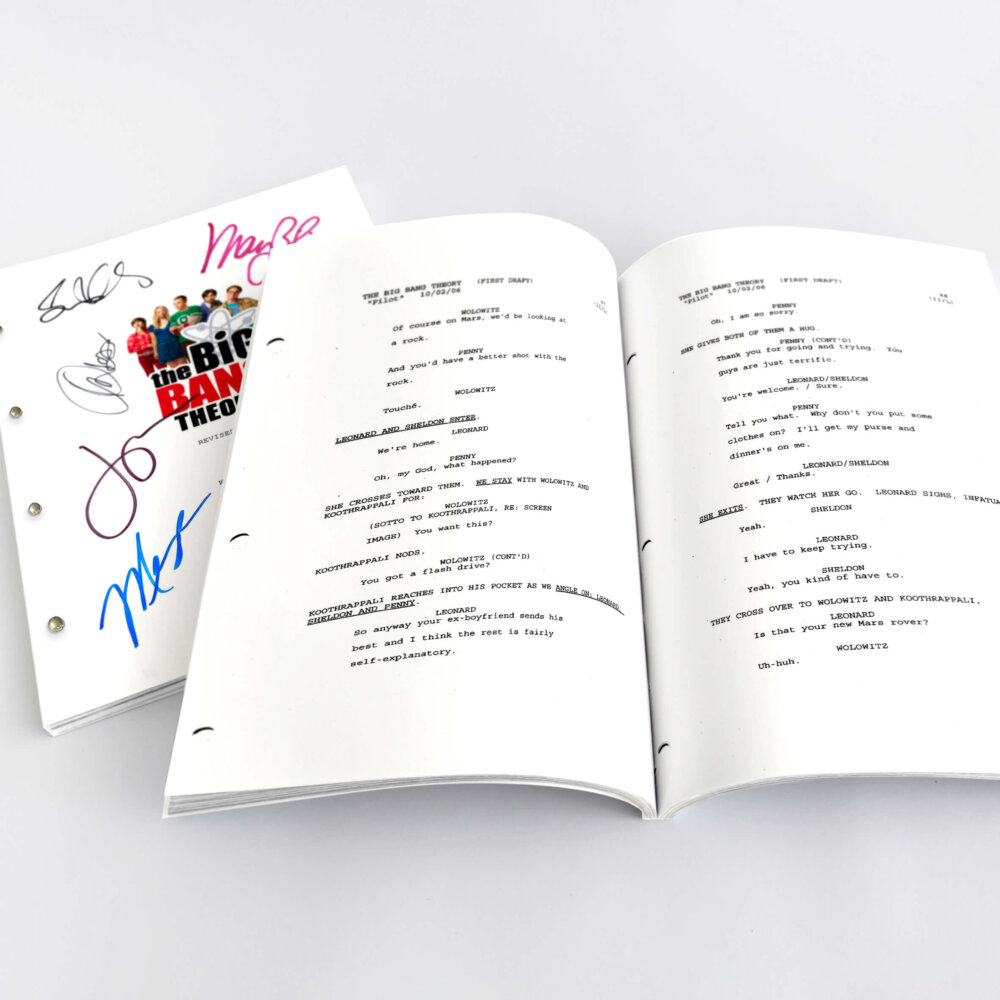 the
BIG
BANG
THEORY
REVISED
THE BIG BANG THEORY (FIRST DRAFT)
"Pilot" 10/02/06
WOLOWITZ
Of course on Mars, we'd be looking at
a rock.
PENNY
And you'd have a better shot with the
rock.
WOLOWITZ
Touché.
LEONARD AND SHELDON ENTER.
LEONARD
We're home.
PENNY
Oh, my God, what happened?
SHE CROSSES TOWARD THEM. WE STAY WITH WOLOWITZ AND
KOOTHRAPPALI FOR:
WOLOWITZ
(SOTTO TO KOOTHRAPPALI, RE: SCREEN
IMAGE) You want this?
KOOTHRAPPALI NODS.
WOLOWITZ (CONT'D)
You got a flash drive?
KOOTHRAPPALI REACHES INTO HIS POCKET AS WE ANGLE ON: LEONARD,
SHELDON AND PENNY.
LEONARD
So anyway your ex-boyfriend sends his
best and I think the rest is fairly
self-explanatory.
THE BIG BANG THEORY (FIRST DRAFT)
"Pilot" 10/02/06
PENNY
Oh, I am so sorry.
SHE GIVES BOTH OF THEM A HUG.
PENNY (CONT'D)
Thank you for going and trying. You
guys are just terrific.
LEONARD/SHELDON
You're welcome. / Sure.
PENNY
Tell you what. Why don't you put some
clothes on? I'll get my purse and
dinner's on me.
LEONARD/SHELDON
Great / Thanks.
SHE EXITS. THEY WATCH HER GO. LEONARD SIGHS, INFATUA
SHELDON
Yeah.
LEONARD
I have to keep trying.
SHELDON
Yeah, you kind of have to.
THEY CROSS OVER TO WOLOWITZ AND KOOTHRAPPALI.
LEONARD
Is that your new Mars rover?
WOLOWITZ
Uh-huh.